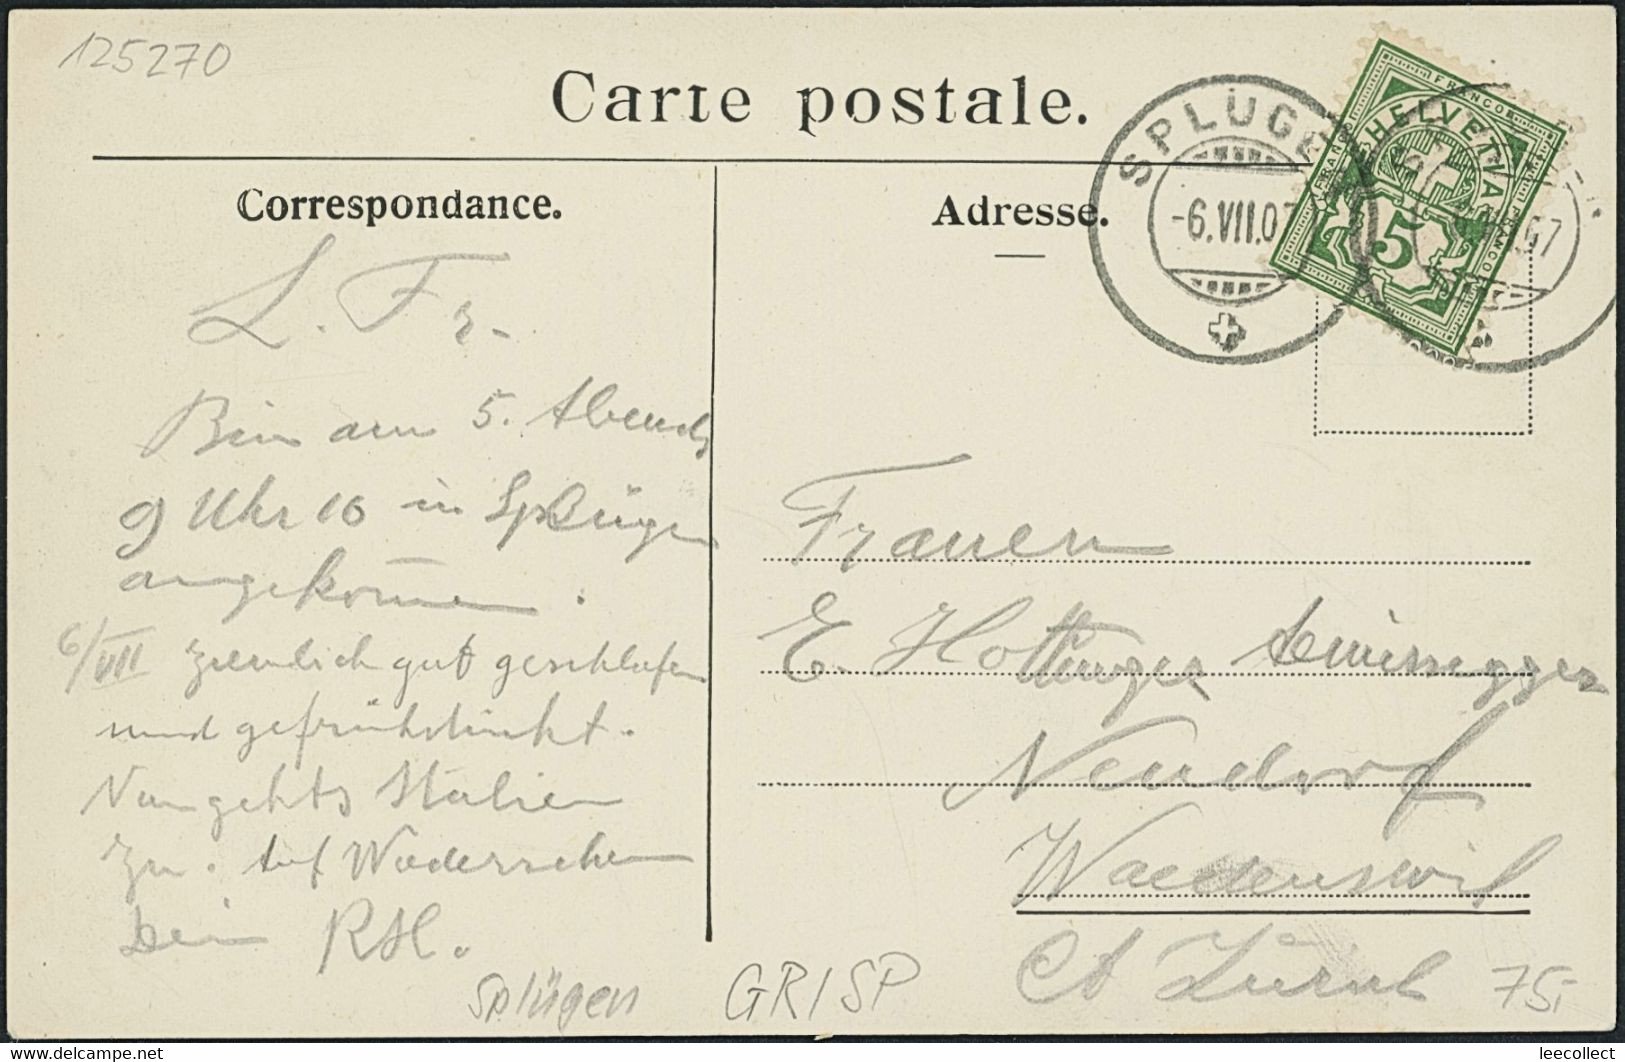 125270
Carte postale.
Correspondance.
Adresse.
SPLÜGEN
-6.VII.07
HELVETIA
FRANCO
5
L. Fr.
Bin am 5. Abends
9 Uhr 10 in Splügen
angekom̄en.
6/VII ziemlich gut geschlafen
und gefrühstückt.
Nun gehts Italien
zu. Auf Wiedersehen
Dein RH.
Frauen
E. Hottinger
Neudorf
Waedenswil
Ct Zürich
Splügen
GR/SP
75,-
www.delcampe.net
leecollect